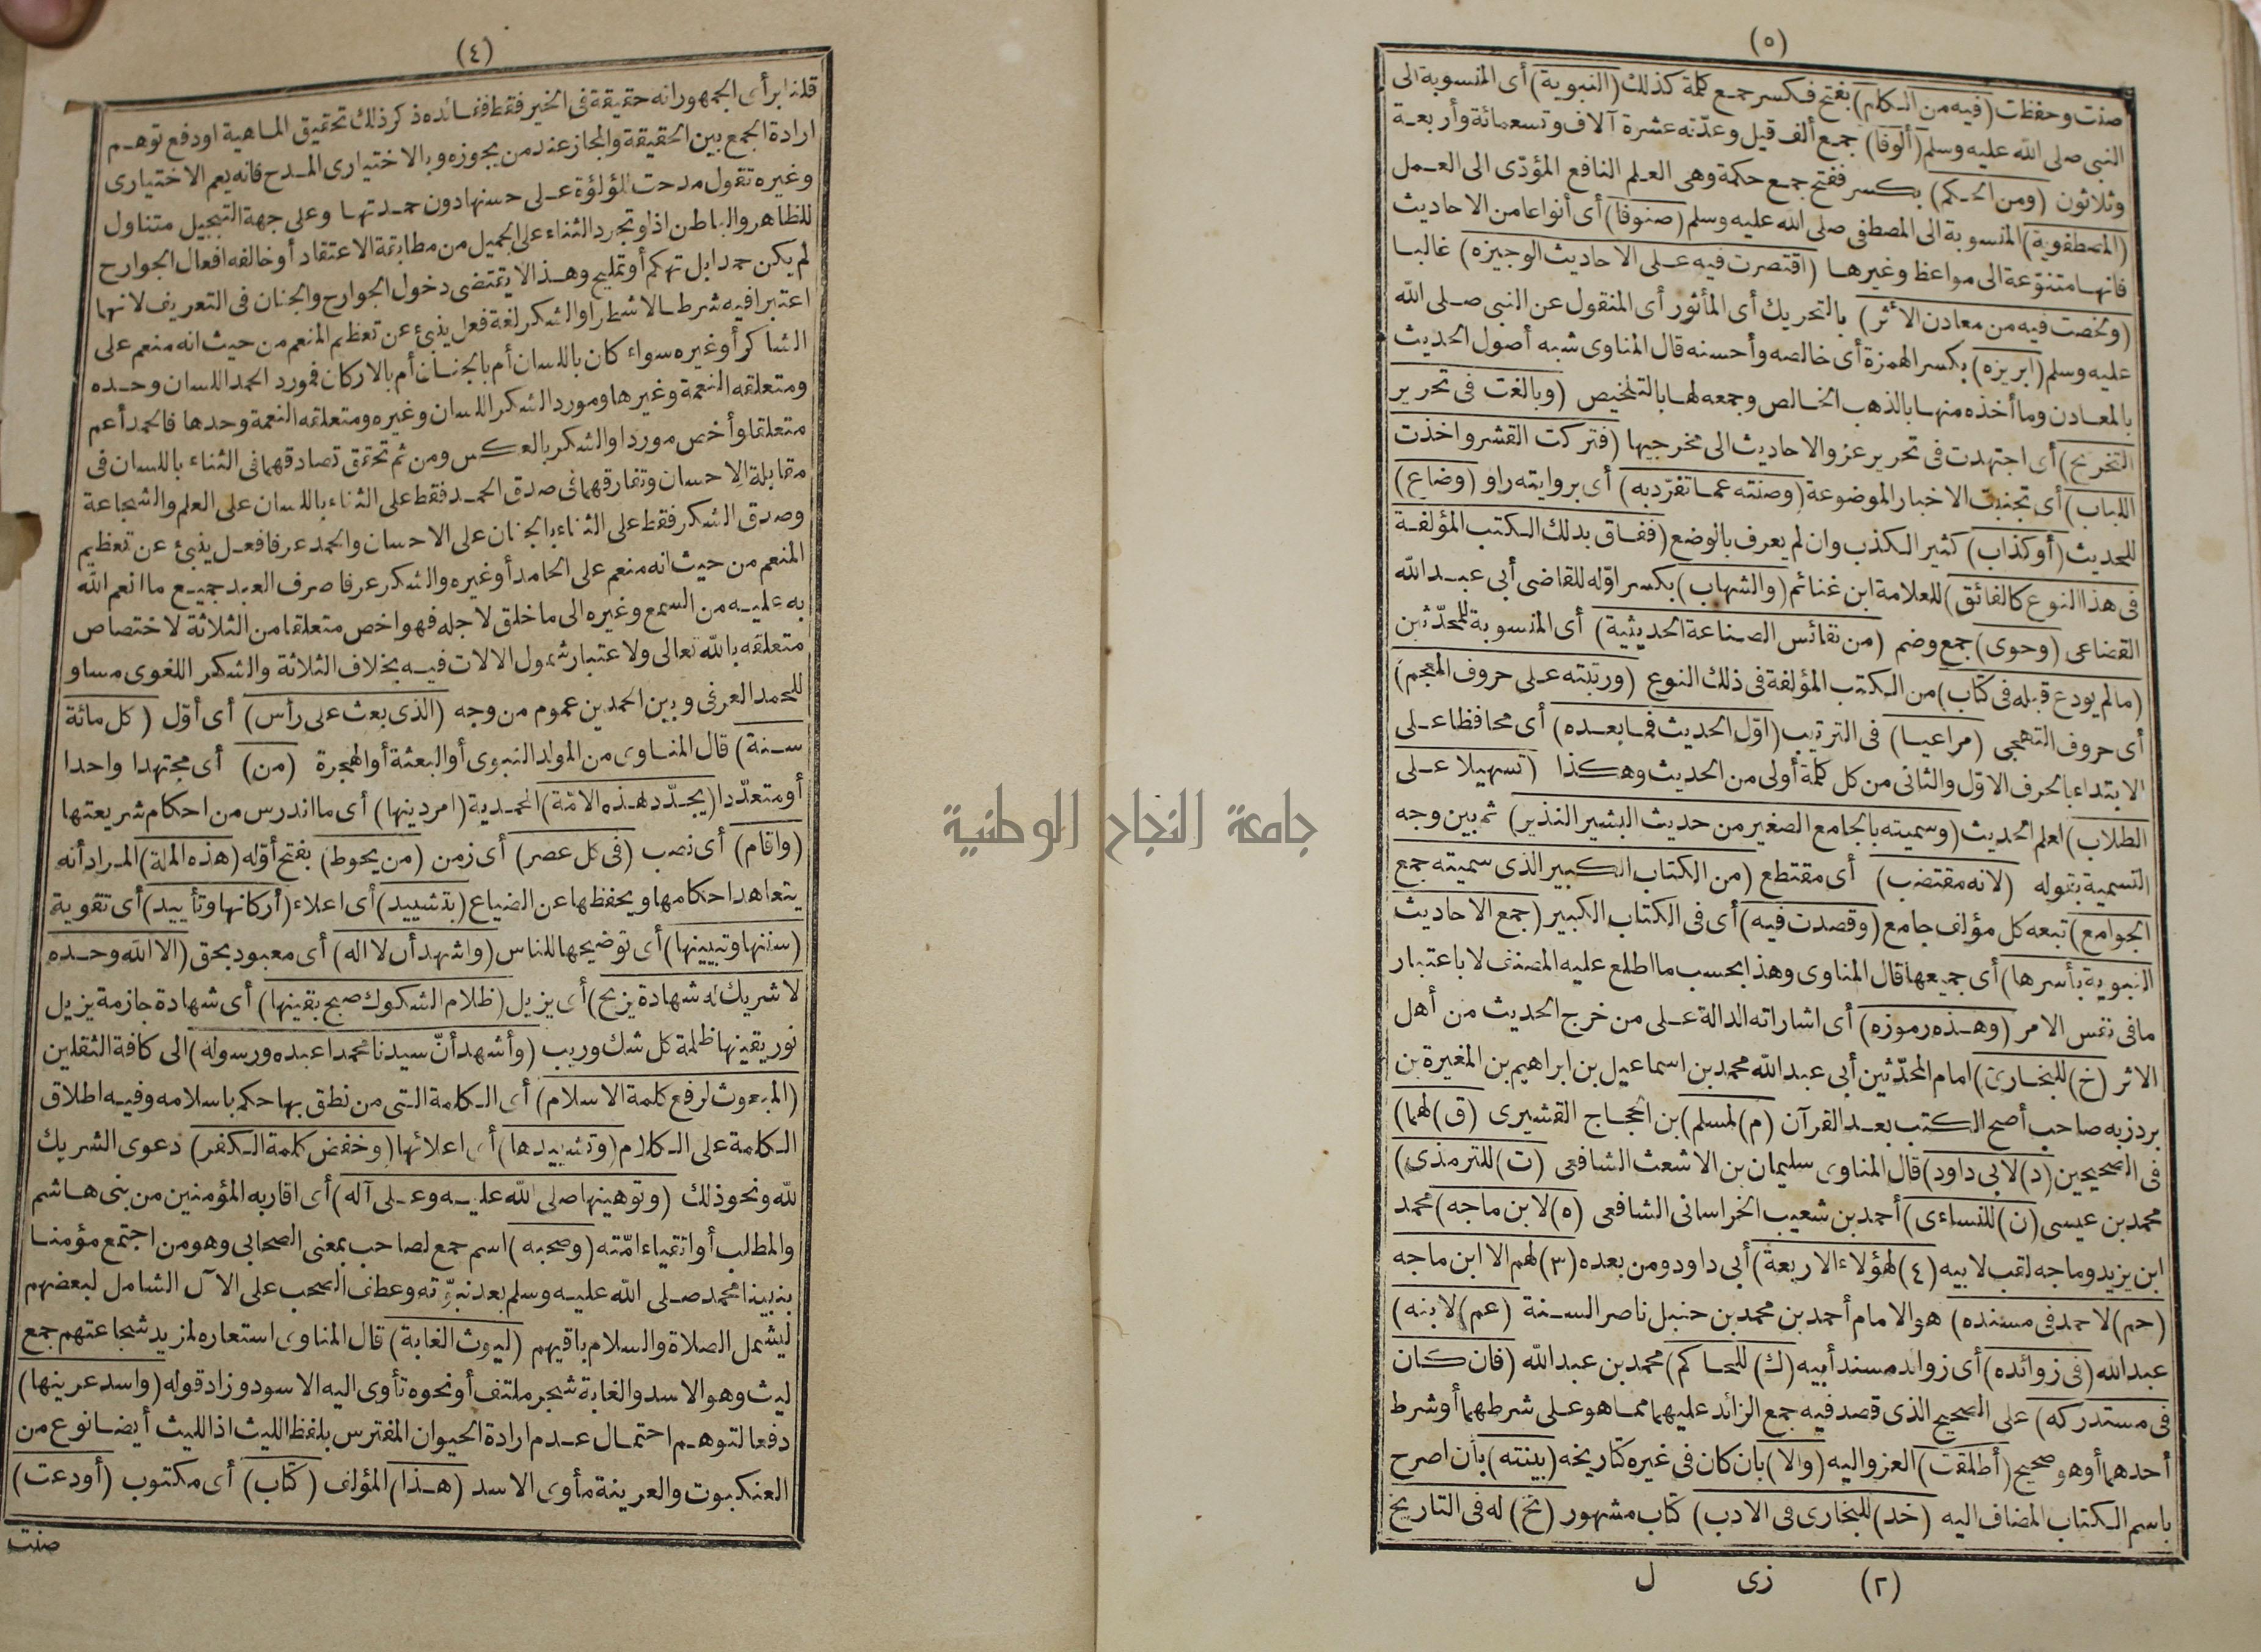 (٤)
قلنا برأى الجمهور انه حقيقة فى الخير فقط ففائده ذكر ذلك تحقيق الماهية او دفع توهم
ارادة الجمع بين الحقيقة والمجاز عند من يجوزه وبالاختيارى المدح فانه يعم الاختيارى
وغيره تقول مدحت اللؤلؤة على حسنها دون حمدتها وعلى جهة التبجيل متناول
للظاهر والباطن اذ لو تجرد الثناء على الجميل من مطابقة الاعتقاد أو خالفه افعال الجوارح
لم يكن حمدا بل تهكم أو تمليح وهذا لا يقتضى دخول الجوارح والجنان فى التعريف لانهما
اعتبرا فيه شرطا لا شطرا والشكر لغة فعل ينبئ عن تعظيم المنعم من حيث انه منعم على
الشاكر أو غيره سواء كان باللسان أم بالجنان أم بالاركان فمورد الحمد اللسان وحده
ومتعلقه النعمة وغيرها ومورد الشكر اللسان وغيره ومتعلقه النعمة وحدها فالحمد أعم
متعلقا وأخص موردا والشكر بالعكس ومن ثم تحقق تصادقهما فى الثناء باللسان فى
مقابلة الاحسان وتفارقهما فى صدق الحمد فقط على الثناء باللسان على العلم والشجاعة
وصدق الشكر فقط على الثناء بالجنان على الاحسان والحمد عرفا فعل ينبئ عن تعظيم
المنعم من حيث انه منعم على الحامد أو غيره والشكر عرفا صرف العبد جميع ما انعم الله
به عليه من السمع وغيره الى ما خلق لاجله فهو اخص متعلقا من الثلاثة لاختصاص
متعلقه بالله تعالى ولاعتبار شمول الالات فيه بخلاف الثلاثة والشكر اللغوى مساو
للحمد العرفى وبين الحمدين عموم من وجه (الذى بعث على رأس) أى أوّل (كل مائة
سنة) قال المناوى من المولد النبوى أو البعثة أو الهجرة (من) أى مجتهدا واحدا
أو متعدّدا (يجدّد لهذه الامّة) المحمدية (امر دينها) أى ما اندرس من احكام شريعتها
(واقام) أى نصب (فى كل عصر) أى زمن (من يحوط) بفتح أوّله (هذه الملة) المراد أنه
يتعاهد احكامها ويحفظها عن الضياع (بتشييد) أى اعلاء (أركانها وتأييد) أى تقوية
(سننها وتبيينها) أى توضيحها للناس (واشهد أن لا اله) أى معبود بحق (الا الله وحده
لا شريك له شهادة يزيح) أى يزيل (ظلام الشكوك صبح يقينها) أى شهادة جازمة يزيل
نور يقينها ظلمة كل شك وريب (وأشهد أنّ سيدنا محمدا عبده ورسوله) الى كافة الثقلين
(المبعوث لرفع كلمة الاسلام) أى الكلمة التى من نطق بها حكم باسلامه وفيه اطلاق
الكلمة على الكلام (وتشييدها) أى اعلائها (وخفض كلمة الكفر) دعوى الشريك
لله ونحو ذلك (وتوهينها صلى الله عليه وعلى آله) أى اقاربه المؤمنين من بنى هاشم
والمطلب أو اتقياء امّته (وصحبه) اسم جمع لصاحب بمعنى الصحابى وهو من اجتمع مؤمنا
بنبينا محمد صلى الله عليه وسلم بعد نبوّته وعطف الصحب على الآل الشامل لبعضهم
ليشمل الصلاة والسلام باقيهم (ليوث الغابة) قال المناوى استعاره لمزيد شجاعتهم جمع
ليث وهو الاسد والغابة شجر ملتف أو نحوه تأوى اليه الاسود وزاد قوله (واسد عرينها)
دفعا لتوهم احتمال عدم ارادة الحيوان المفترس بلفظ الليث اذ الليث أيضا نوع من
العنكبوت والعرينة مأوى الاسد (هذا) المؤلف (كتاب) أى مكتوب (أودعت)
صنت
(٥)
صنت وحفظت (فيه من الكلم) بفتح فكسر جمع كلمة كذلك (النبوية) أى المنسوبة الى
النبى صلى الله عليه وسلم (ألوفا) جمع ألف قيل وعدّته عشرة آلاف وتسعمائة وأربعة
وثلاثون (ومن الحكم) بكسر ففتح جمع حكمة وهى العلم النافع المؤدّى الى العمل
(المصطفوية) المنسوبة الى المصطفى صلى الله عليه وسلم (صنوفا) أى أنواعا من الاحاديث
فانها متنوّعة الى مواعظ وغيرها (اقتصرت فيه على الاحاديث الوجيزه) غالبا
(ولخصت فيه من معادن الاثر) بالتحريك أى المأثور أى المنقول عن النبى صلى الله
عليه وسلم (ابريزه) بكسر الهمزة أى خالصه وأحسنه قال المناوى شبه أصول الحديث
بالمعادن وما أخذه منها بالذهب الخالص وجمعه لها بالتلخيص (وبالغت فى تحرير
التخريج) أى اجتهدت فى تحرير عزو الاحاديث الى مخرجيها (فتركت القشر واخذت
اللباب) أى تجنبت الاخبار الموضوعة (وصنته عما تفرّد به) أى بروايته راو (وضاع)
للحديث (أو كذاب) كثير الكذب وان لم يعرف بالوضع (ففاق بذلك الكتب المؤلفة
فى هذا النوع كالفائق) للعلامة ابن غنائم (والشهاب) بكسر اوّله للقاضى أبى عبد الله
القضاعى (وحوى) جمع وضم (من نفائس الصناعة الحديثية) أى المنسوبة للمحدّثين
(ما لم يودع قبله فى كتاب) من الكتب المؤلفة فى ذلك النوع (ورتبته على حروف المعجم)
أى حروف التهجى (مراعيا) فى الترتيب (اوّل الحديث فما بعده) أى محافظا على
الابتداء بالحرف الاوّل والثانى من كل كلمة أولى من الحديث وهكذا (تسهيلا على
الطلاب) لعلم الحديث (وسميته بالجامع الصغير من حديث البشير النذير) ثم بين وجه
التسمية بقوله (لانه مقتضب) أى مقتطع (من الكتاب الكبير الذى سميته جمع
الجوامع) تبعه كل مؤلف جامع (وقصدت فيه) أى فى الكتاب الكبير (جمع الاحاديث
النبوية بأسرها) أى جميعها قال المناوى وهذا بحسب ما اطلع عليه المصنف لا باعتبار
ما فى نفس الامر (وهذه رموزه) أى اشاراته الدالة على من خرج الحديث من أهل
الاثر (خ) للبخارى) امام المحدّثين أبى عبد الله محمد بن اسماعيل بن ابراهيم بن المغيرة بن
بردزبه صاحب أصح الكتب بعد القرآن (م) لمسلم) بن الحجاج القشيرى (ق) لهما)
فى الصحيحين (د) لابى داود) قال المناوى سليمان بن الاشعث الشافعى (ت) للترمذى)
محمد بن عيسى (ن) للنساءى) أحمد بن شعيب الخراسانى الشافعى (ه) لابن ماجه) محمد
ابن يزيد وماجه لقب لابيه (٤) لهؤلاء الاربعة) أبى داود ومن بعده (٣) لهم الا ابن ماجه
(حم) لاحمد فى مسنده) هو الامام أحمد بن محمد بن حنبل ناصر السنة (عم) لابنه)
عبد الله (فى زوائده) أى زوائد مسند أبيه (ك) للحاكم) محمد بن عبد الله (فان كان
فى مستدركه) على الصحيح الذى قصد فيه جمع الزائد عليهما مما هو على شرطهما أو شرط
أحدهما أو هو صحيح (أطلقت) العزو اليه (والا) بان كان فى غيره كتاريخه (بينته) بأن اصرح
باسم الكتاب المضاف اليه (خد) للبخارى فى الادب) كتاب مشهور (تخ) له فى التاريخ
(٢) زى ل
جامعة النجاح الوطنية